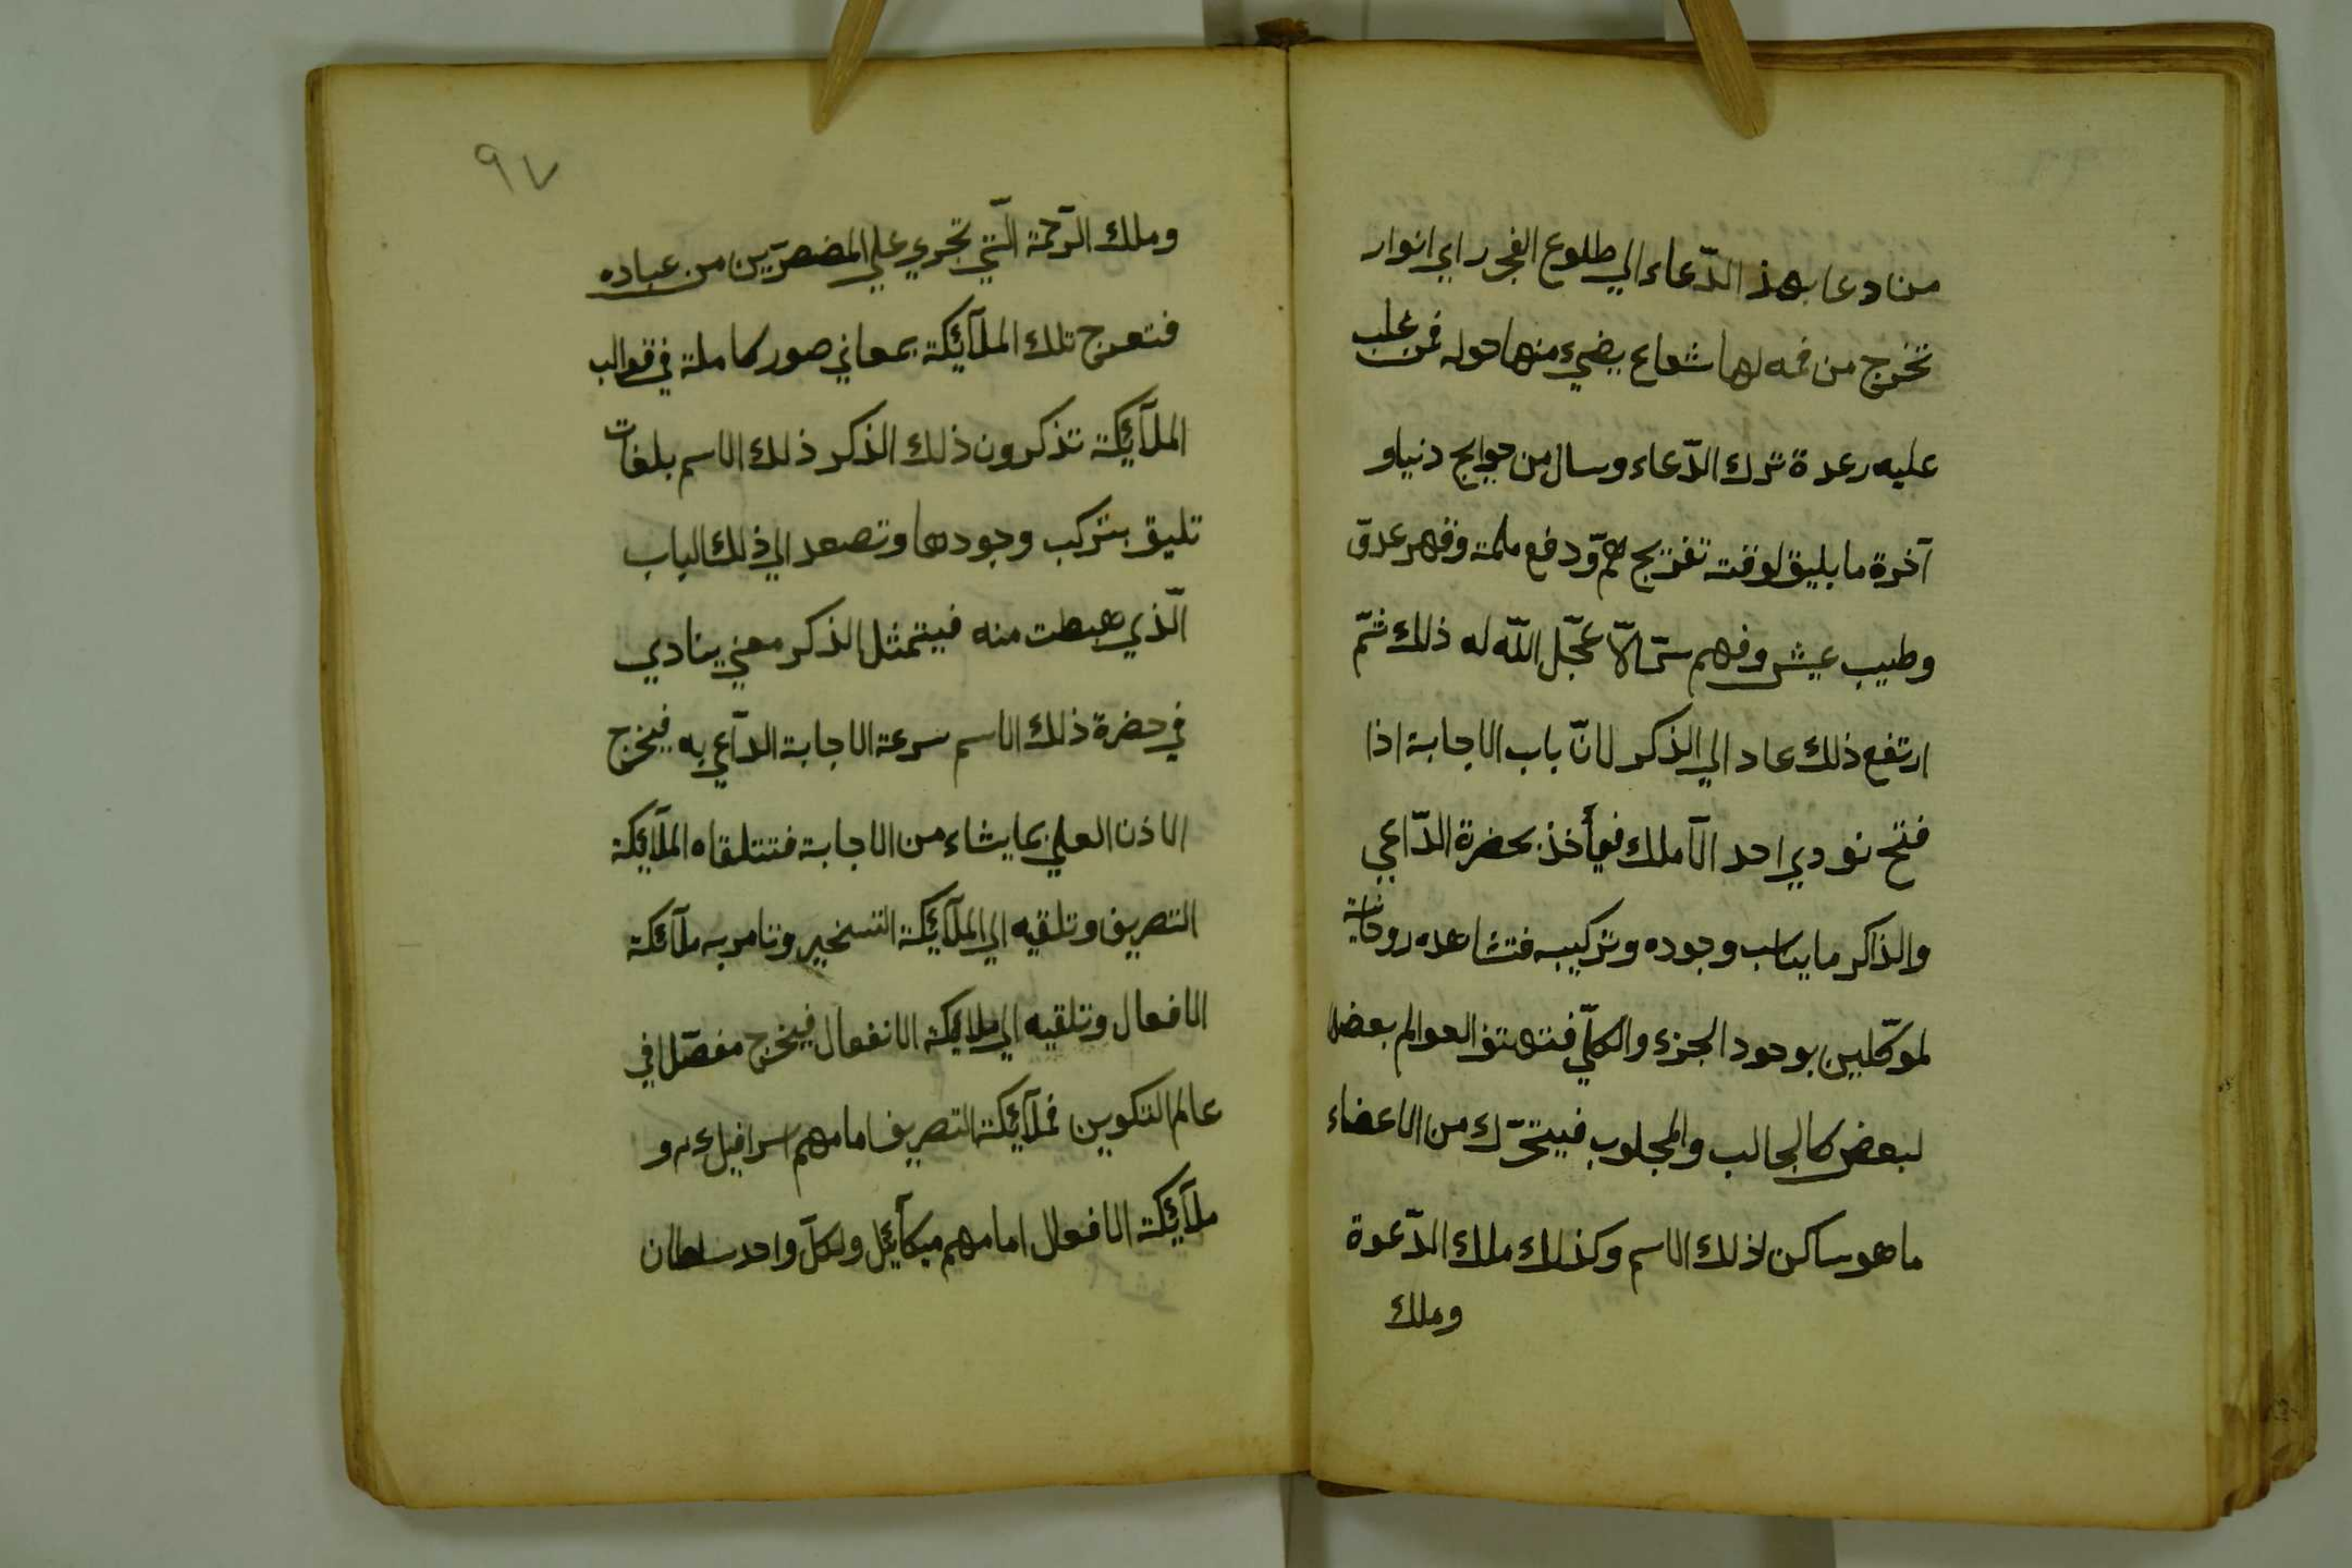 منادعا بهذ الدّعاء الي طلوع الفجر راي انوار
تخرج من فمه لها شعاع يضيء منها حوله فمن غلب
عليه رعدة ترك الدّعاء وسال من حوايج دنياو
آخرة ما يليق لوقته تفريج همّ ودفع ملمة وقهر عدوّ
وطيب عيش وفهم سرّ الّا عجّل اللّه له ذلك ثمّ
ارتفع ذلك عاد الي الذكر لانّ باب الاجابة اذا
فتح نودي احد الآملك فيأخذ بحضرة الدّاعي
والذاكر ما يناسب وجوده وتركيبه فتشاهده روحانية
لموكّلين بوجود الجزء والكلّي فتهتز العوالم بعضها
لبعض كالجالب والمجلوب فيتحرّك من الاعضاء
ما هو ساكن لذلك الاسم وكذلك ملك الدّعوة
وملك
٩٧
وملك الرّحمة الّتي تجري علي المضصرّين من عباده
فتعرج تلك الملآئكة بمعاني صور كاملة في قوالب
الملآئكة تذكرون ذلك الذكر ذلك الاسم بلغات
تليق بتركب وجودها وتصعد الي ذلك الباب
الّذي هبطت منه فيتمثل الذكر معني ينادي
في حضرة ذلك الاسم سرعة الاجابة الدّاعي به فيخرج
الاذن العلي بما يشاء من الاجابة فتتلقاه الملآئكة
التصريف وتلقيه الي الملآئكة التسخير وتامر به ملآئكة
الافعال وتلقيه الي ملايكة الانفعال فيخرج مفصّلا في
عالم التكوين فملآئكة التصريف امامهم اسرافيل ءم و
ملآئكة الافعال امامهم ميكآئيل ولكلّ واحد سلطان